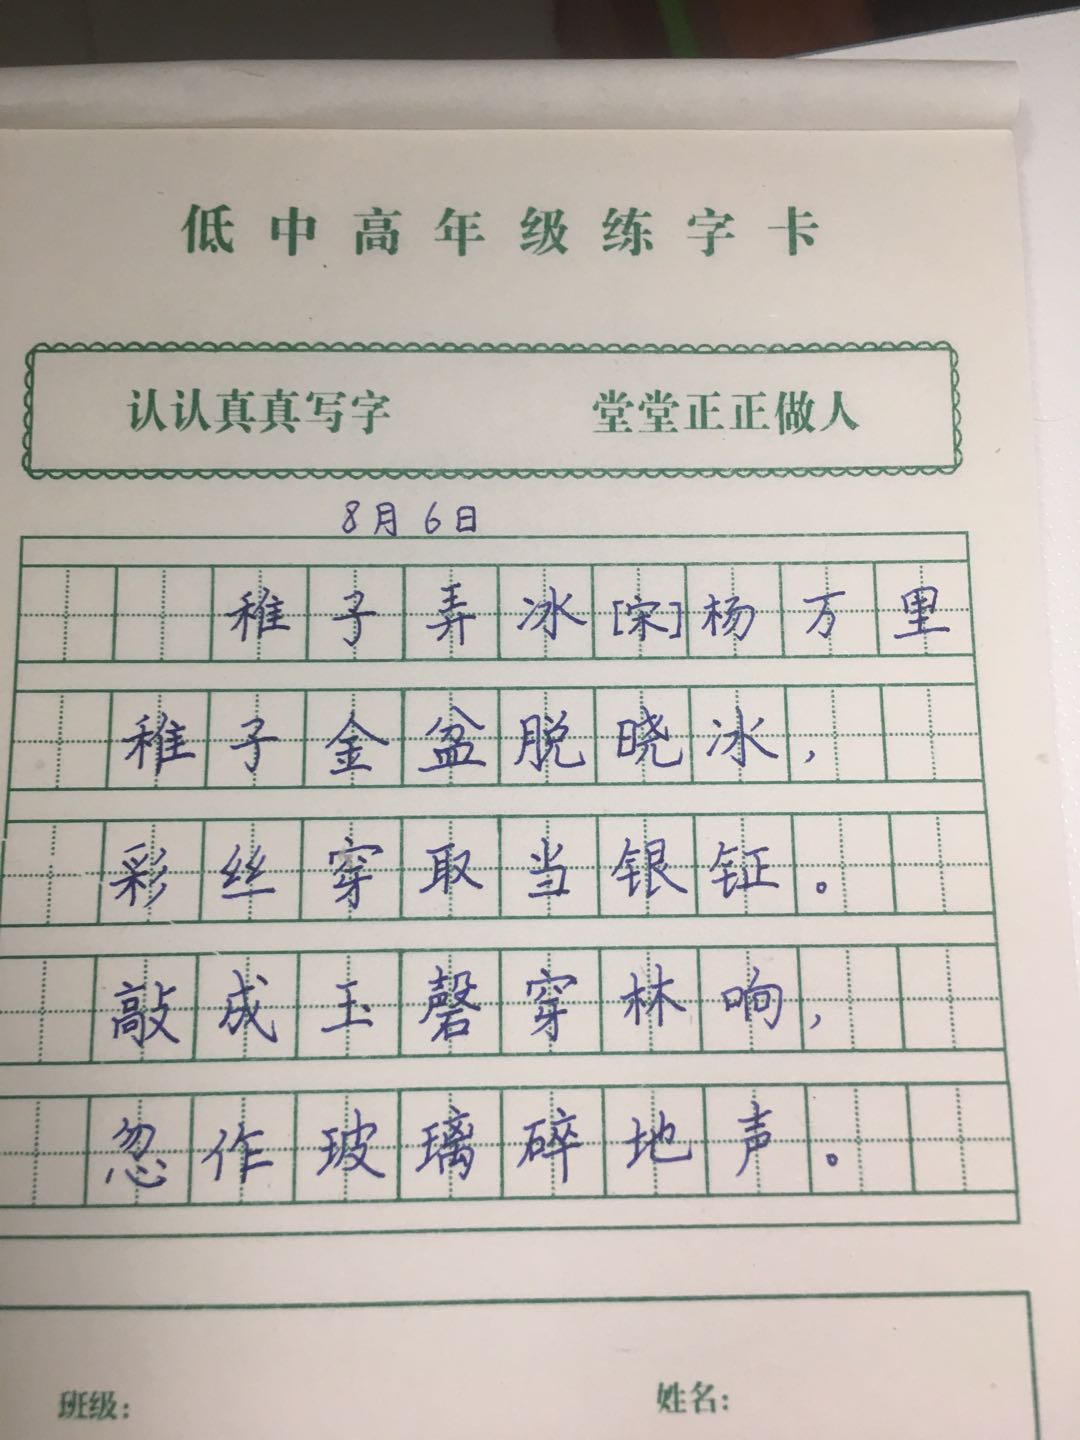 低中高年级练字卡
认认真真写字 堂堂正正做人
8月6日
稚子弄冰[宋]杨万里
稚子金盆脱晓冰，
彩丝穿取当银钲。
敲成玉磬穿林响，
忽作玻璃碎地声。
班级： 姓名：